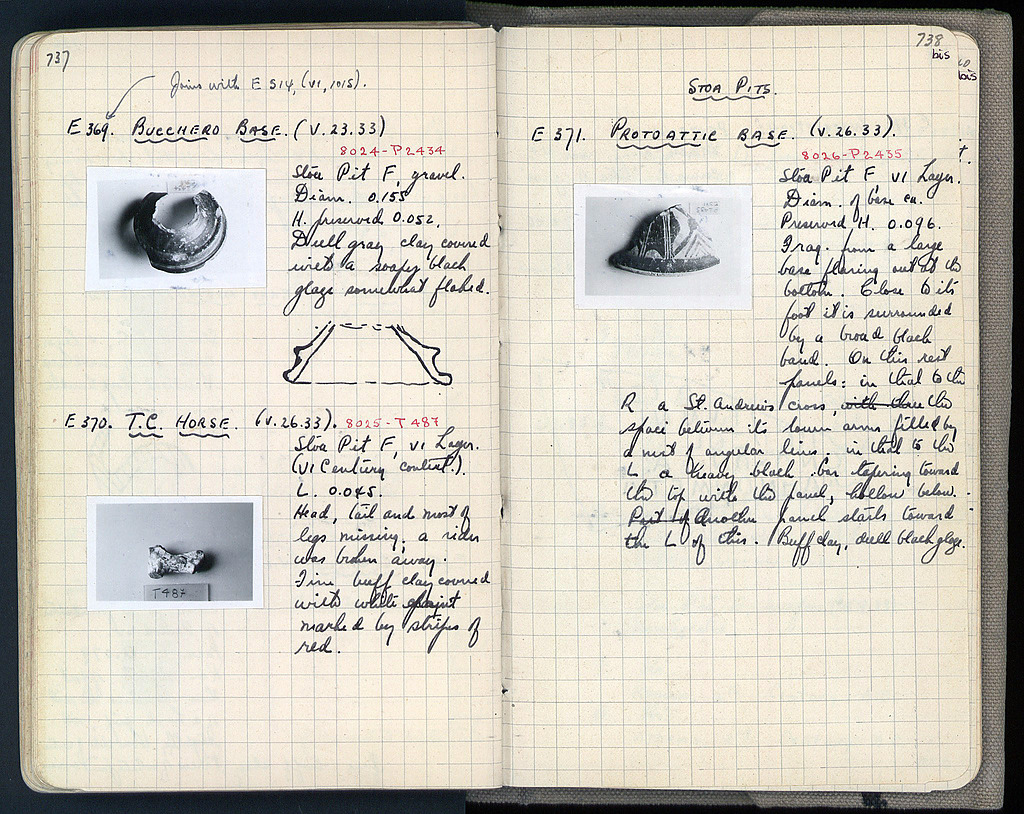 737
Joins with E 514, (VI, 1015).
E 369. BUCCHERO BASE. (V.23.33)
8024-P2434
Stoa Pit F, gravel.
Diam. 0.155
H. preserved 0.052.
Dull gray clay covered
with a soapy black
glaze somewhat flaked.
E 370. T.C. HORSE. (V.26.33). 8025-T487
Stoa Pit F, VI Layer.
(VI Century context).
L. 0.045.
Head, tail and most of
legs missing; a rider
was broken away.
Fine buff clay covered
with white paint
marked by stripes of
red.
T487
738
bis
bis
STOA PITS.
E 371. PROTOATTIC BASE. (V.26.33).
8026-P2435
Stoa Pit F VI Layer.
Diam. of base ca.
Preserved H. 0.096.
Frag. from a large
base flaring out at the
bottom. Close to its
foot it is surrounded
by a broad black
band. On this rest
panels: in that to the
R a St. Andrew's cross, with three the
space between its lower arms filled by
a nest of angular lines. in that to the
L a heavy black bar tapering toward
the top with the panel, hollow below.
Part of Another panel starts toward
the L of this. Buff clay, dull black glaze.